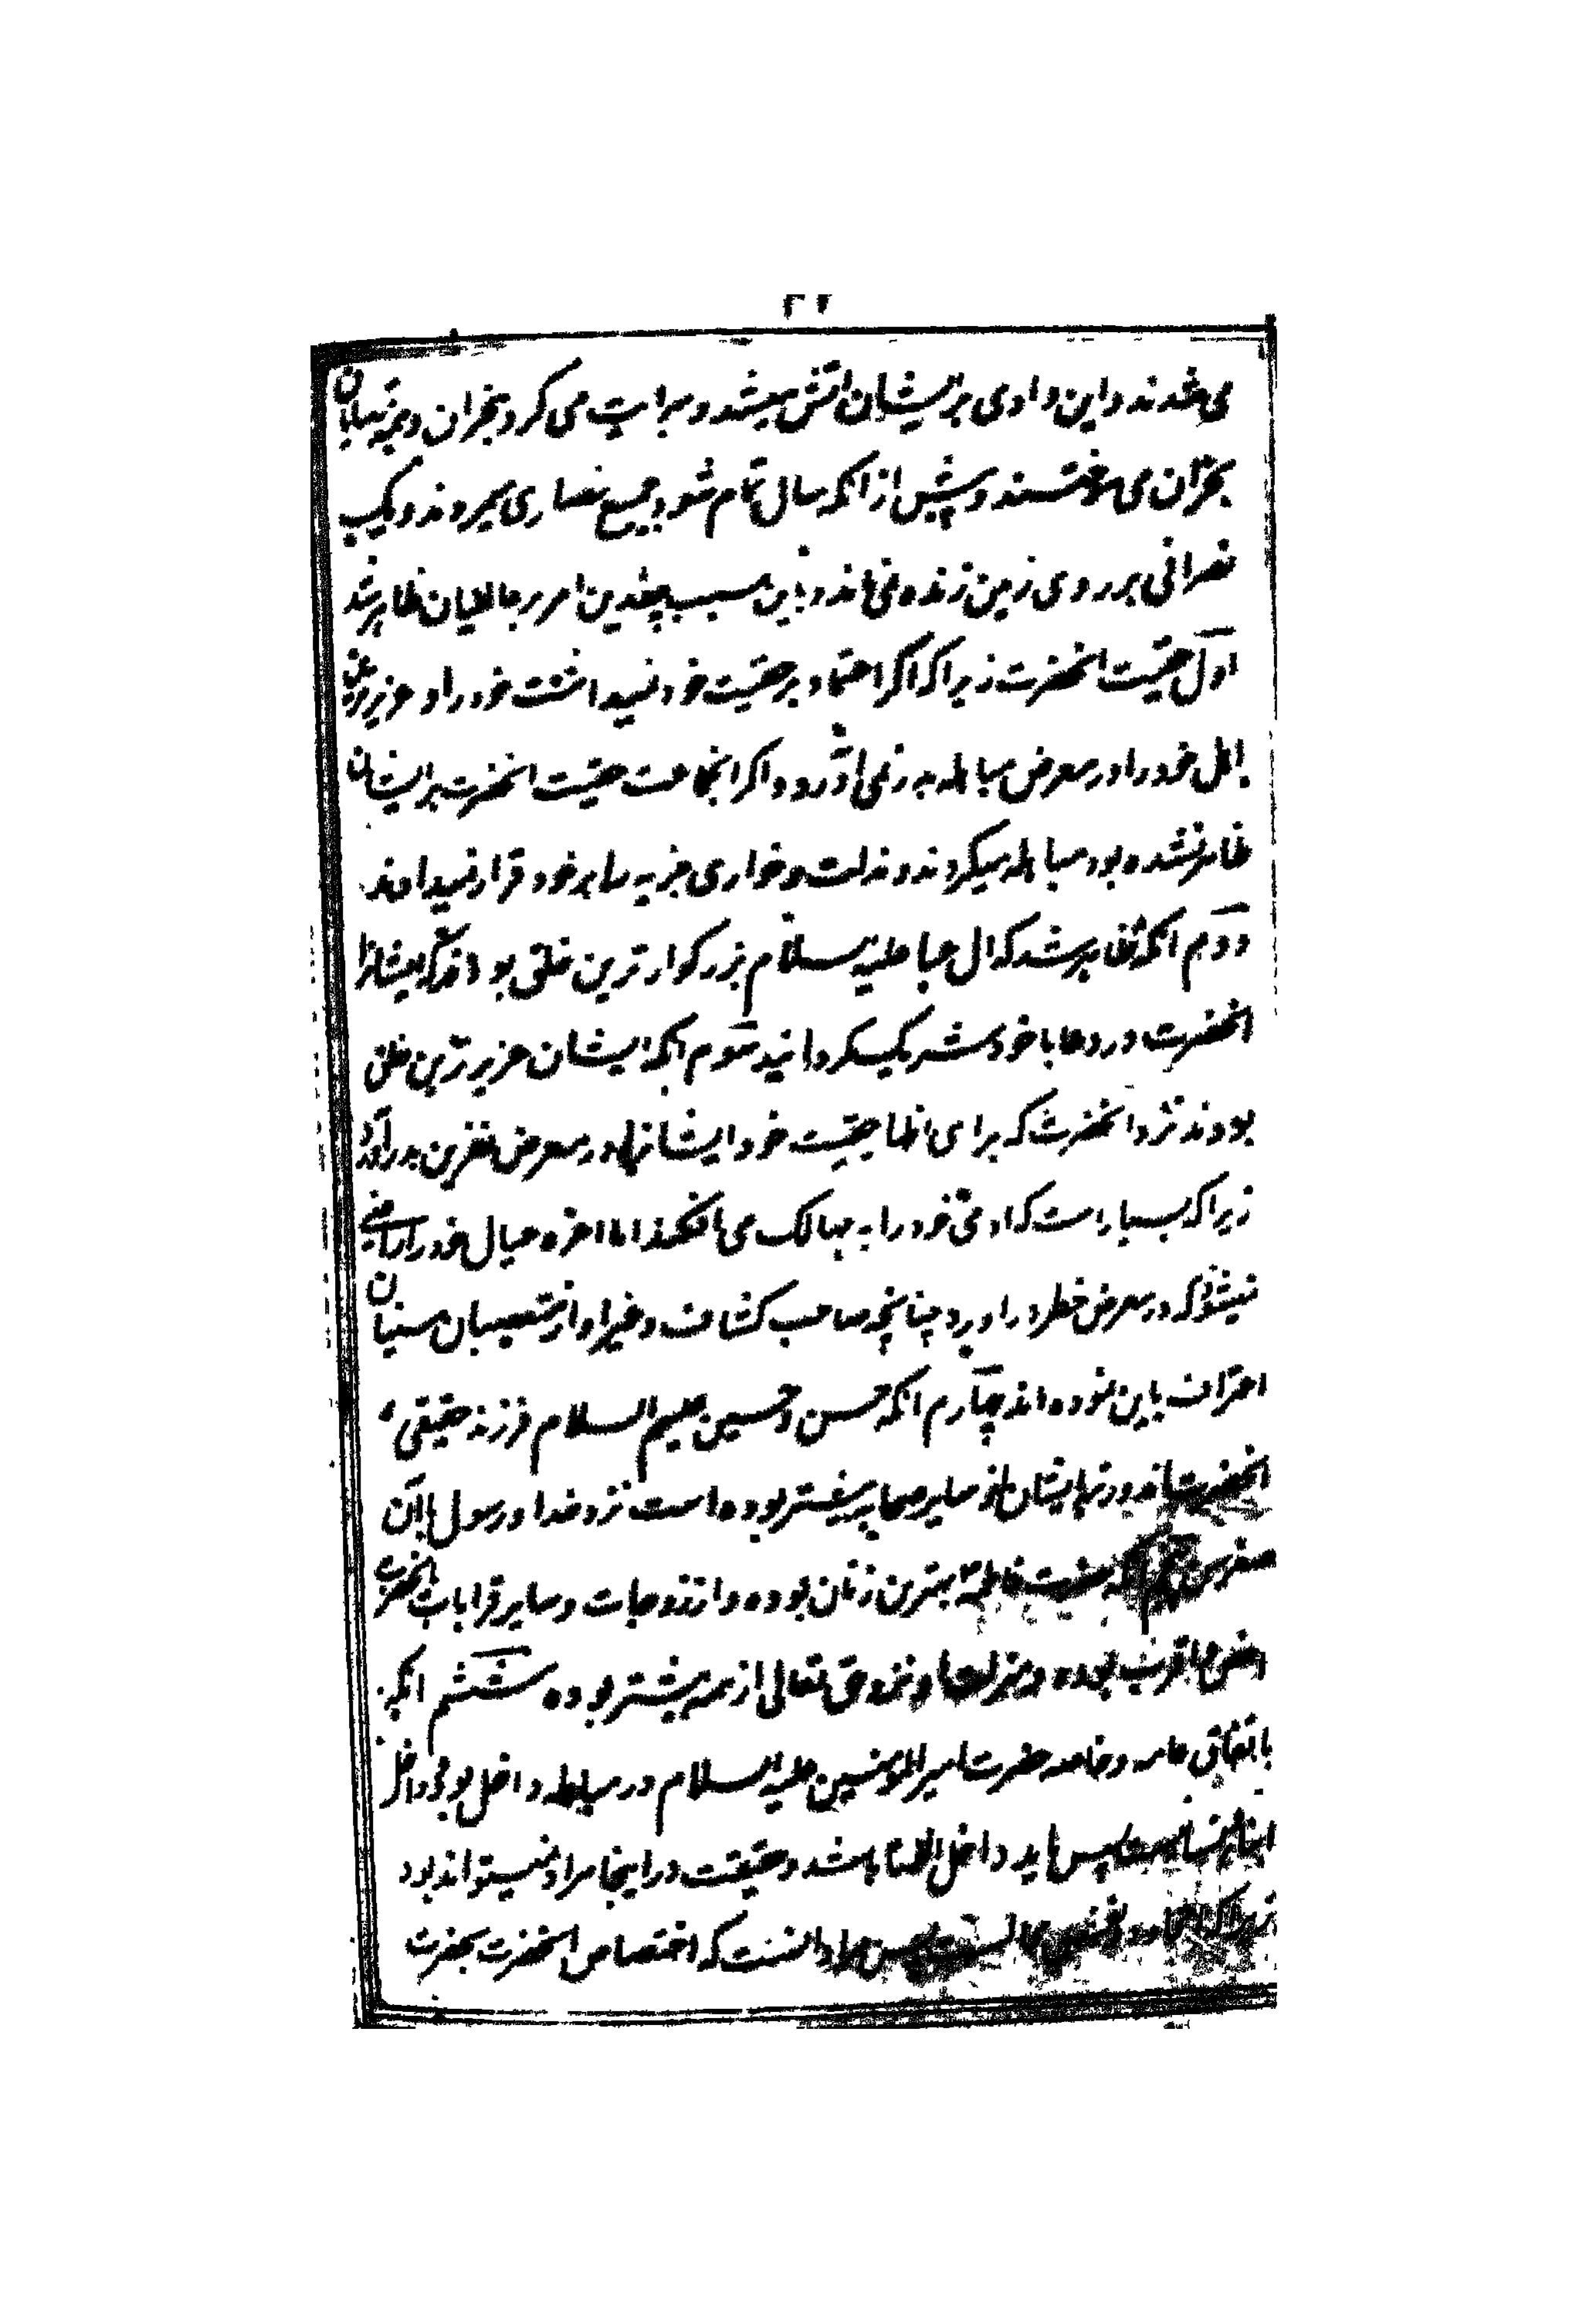 ۳۲
می شدند و این وادی بر ایشان آتش میشد و سرایت می کرد بنجران و همه تبایان
نجران می سوختند و پیش از انکه سال تمام شود جمیع نصاری میمردند و یک
نصرانی بر روی زمین زنده نمی ماند و باین سبب چندین امر بر عالمیان ظاهر شد
اول حقیت انحضرت زیرا که اگر اعتماد بر حقیت خود نمیداشت خود را و عزیزترین
اهل خود را در معرض مباهله در نمی آورد و اگر انجماعت حقیت انحضرت بر ایشان
ظاهر نشده بود مباهله میکردند و مذلت و خواری جزیه را بر خود قرار نمیدادند
دوم انکه ظاهر شد که ال عبا علیهم السلام بزرگوار ترین خلق بودند که ایشانرا
انحضرت در دعا با خود شریک گردانید سوم انکه ایشان عزیز ترین خلق
بودند نزد انحضرت که برای اظهار حقیت خود ایشانرا در معرض نفرین در آورد
زیرا که بسیار است که ادمی خود را به مهالک می افکند اما اعزه عیال خود را راضی
نمیشود که در معرض خطر در اورد چنانچه صاحب کشاف و غیر او از متعصبان سنیان
اعتراف باین نموده اند چهارم انکه حسن و حسین علیهم السلام فرزند حقیقی
انحضرت اند و رتبه ایشان از سایر صحابه بیشتر بوده است نزد خدا و رسول با آن
صغر سن پنجم انکه حضرت فاطمه بهترین زنان بوده و از زوجات و سایر قرابات انحضرت
بوده و منزلت او نزد حق تعالی از همه بیشتر بوده ششم انکه
باتفاق عامه و خاصه حضرت امیرالمومنین علیه السلام در مباهله داخل بود و داخل
ابنا و نسا نیست پس باید داخل انفسنا باشد و حقیقت در اینجا مراد نمیتواند بود
زیرا که پس مراد انست که اختصاص انحضرت بحضرت